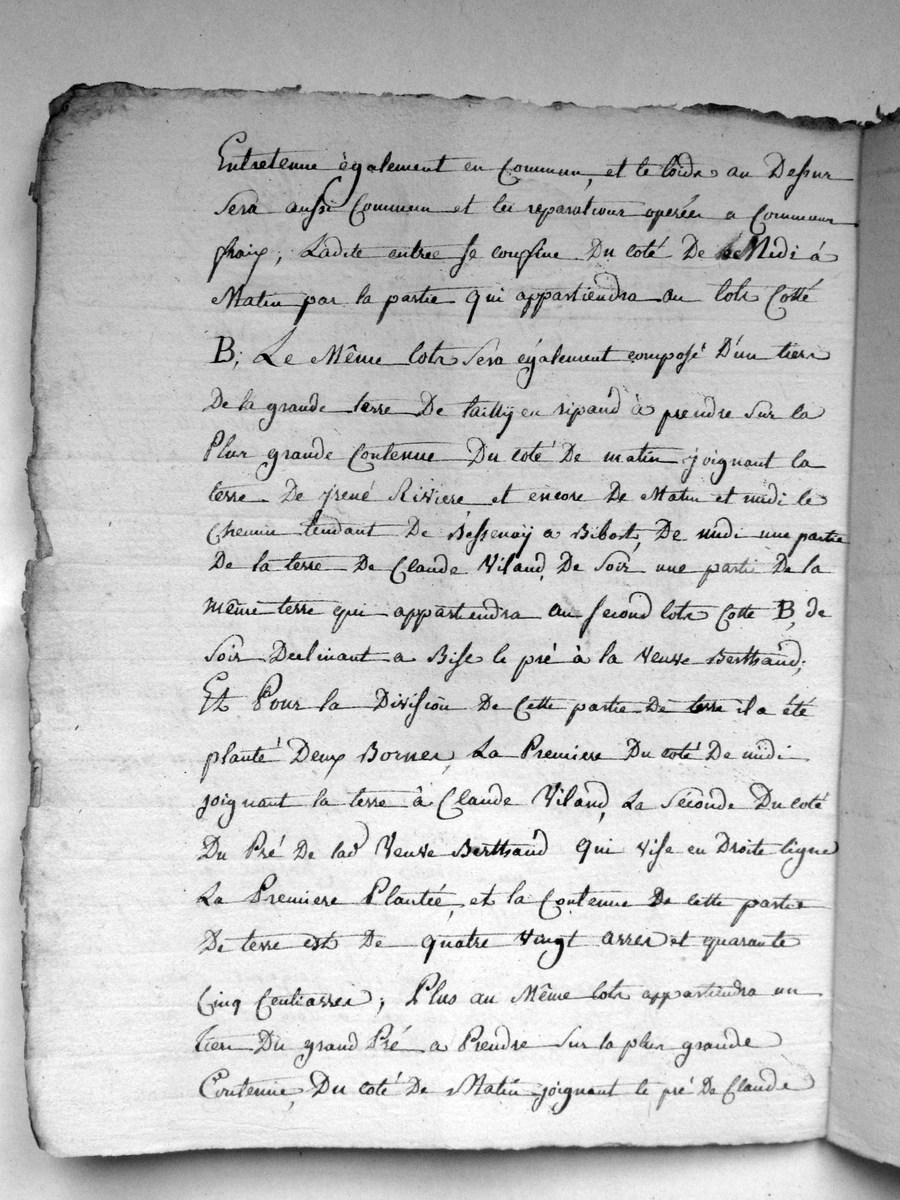 Entretenue également en Commun, et le toida au Dessur
Sera aussi Commun et les reparations operées a Commun
fraix; Ladite entrée se confine Du coté De Midi á
Matin par la partie qui appartiendra au lots Cotté
B; Le Même lots Sera également composé D'un tiers
De la grande terre De taillÿ en ripand à prendre sur la
Plus grande Contenue Du coté De matin joignant la
terre De jrené Riviere et encore De Matin et midi le
Chemin tendant De Bessenaÿ a Bibost, De midi une partie
De la terre De Claude Viland, De Soir une parti De la
même terre qui appartiendra au second lots Cotte B, de
Soir Declinant a Bise le pré à la Veuve Berthaud;
Et Pour la Division De Cette partie De terre il a été
planté Deux Bornes, La Premiere Du coté De midi
joignant la terre à Claude Viland, La Séconde Du coté
Du Pré De lad Veuve Berthaud qui vise en Droite ligne
La Premiere Plantée, et la Contenue De cette partie
De terre est De quatre vingt arres et quarante
Cinq Centiarres; Plus au Même lots appartiendra un
tiers Du grand Pré a Prendre Sur la plus grande
Contenue, Du coté De Matin joignant le pré De Claude